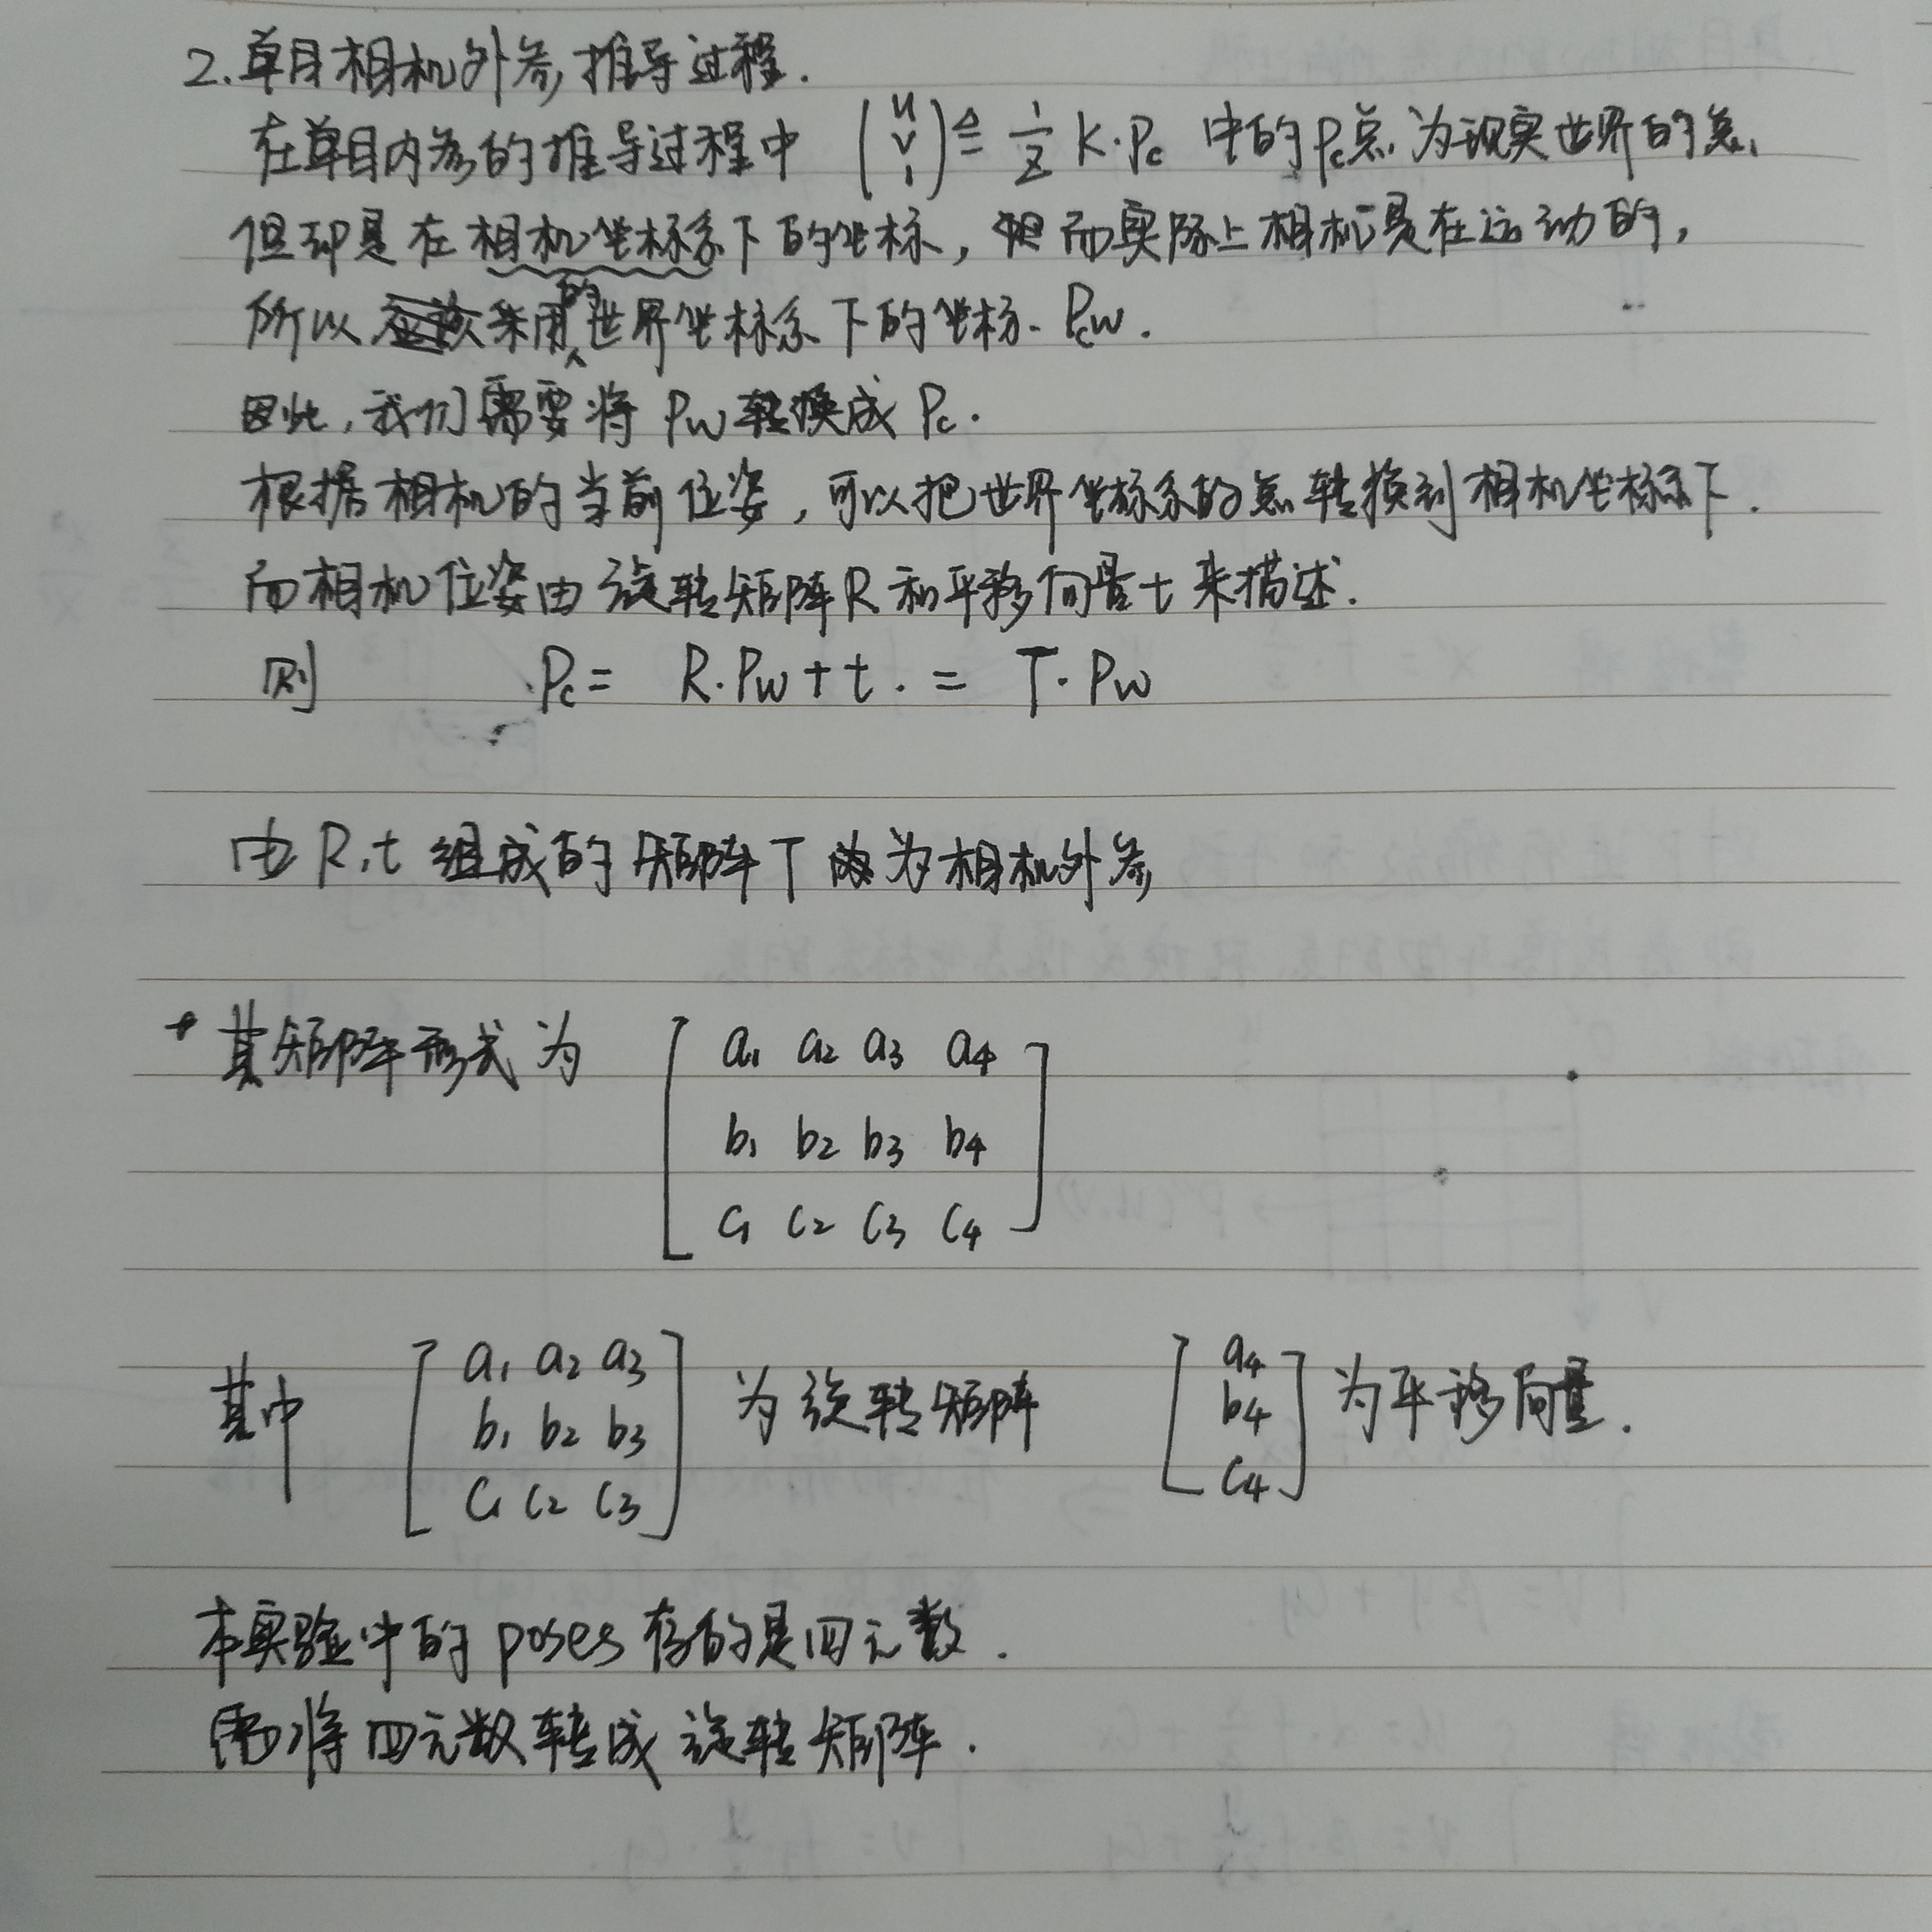 2.单目相机外参推导过程.
在单目内参的推导过程中 (u v 1) ≜ 1/Z K·Pc 中的Pc点为现实世界的点,
但却是在相机坐标系下的坐标, 而实际上相机是在运动的,
所以采用的世界坐标系下的坐标. Pw.
因此,我们需要将 Pw 转换成 Pc.
根据相机的当前位姿,可以把世界坐标系的点转换到相机坐标系下.
而相机位姿由旋转矩阵R和平移向量t来描述.
则 Pc = R·Pw + t. = T·Pw
由R,t 组成的矩阵T 为相机外参
其矩阵形式为
a1 a2 a3 a4
b1 b2 b3 b4
c1 c2 c3 c4
其中 [a1 a2 a3 b1 b2 b3 c1 c2 c3] 为旋转矩阵 [a4 b4 c4] 为平移向量.
本实验中的 poses 存的是四元数.
需将四元数转成旋转矩阵.